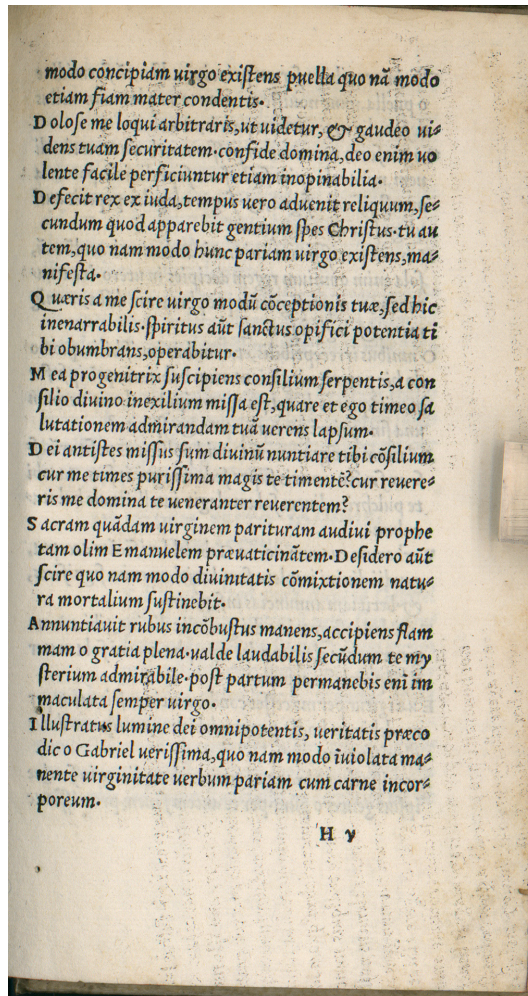 modo concipiam uirgo existens puella quo nã modo
etiam fiam mater condentis.
D olose me loqui arbitraris,ut uidetur, & gaudeo ui⸗
dens tuam securitatem.confide domina,deo enim uo
lente facile perficiuntur etiam inopinabilia.
D efecit rex ex iuda,tempus uero aduenit reliquum,se⸗
cundum quod apparebit gentium spes Christus.tu au
tem,quo nam modo hunc pariam uirgo existens,ma⸗
nifesta.
Q uæris a me scire uirgo modũ cõceptionis tuæ,sed hic
inenarrabilis.spiritus aũt sanctus opifici potentia ti
bi obumbrans,operabitur.
M ea progenitrix suscipiens consilium serpentis,a con
silio diuino inexilium missa est,quare et ego timeo sa
lutationem admirandam tuã uerens lapsum.
D ei antistes missus sum diuinũ nuntiare tibi cõsilium
cur me times purissima magis te timentẽ?cur reuere⸗
ris me domina te ueneranter reuerentem?
S acram quãdam uirginem parituram audiui prophe
tam olim Emanuelem præuaticinãtem.Desidero aũt
scire quo nam modo diuinitatis cõmixtionem natu⸗
ra mortalium sustinebit.
Annuntiauit rubus incõbustus manens,accipiens flam
mam o gratia plena.ualde laudabilis secũdum te my
sterium admirabile.post partum permanebis eni im
maculata semper uirgo.
I llustratus lumine dei omnipotentis, ueritatis præco
dic o Gabriel uerissima,quo nam modo ĩuiolata ma⸗
nente uirginitate uerbum pariam cum carne incor⸗
poreum.
H y